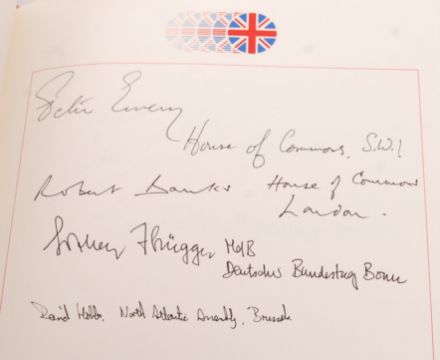 Peter Emery
House of Commons, S.W.1
Robert Banks House of Commons
London.
Flügger MdB
Deutscher Bundestag Bonn
David Hobbs, North Atlantic Assembly, Brussels